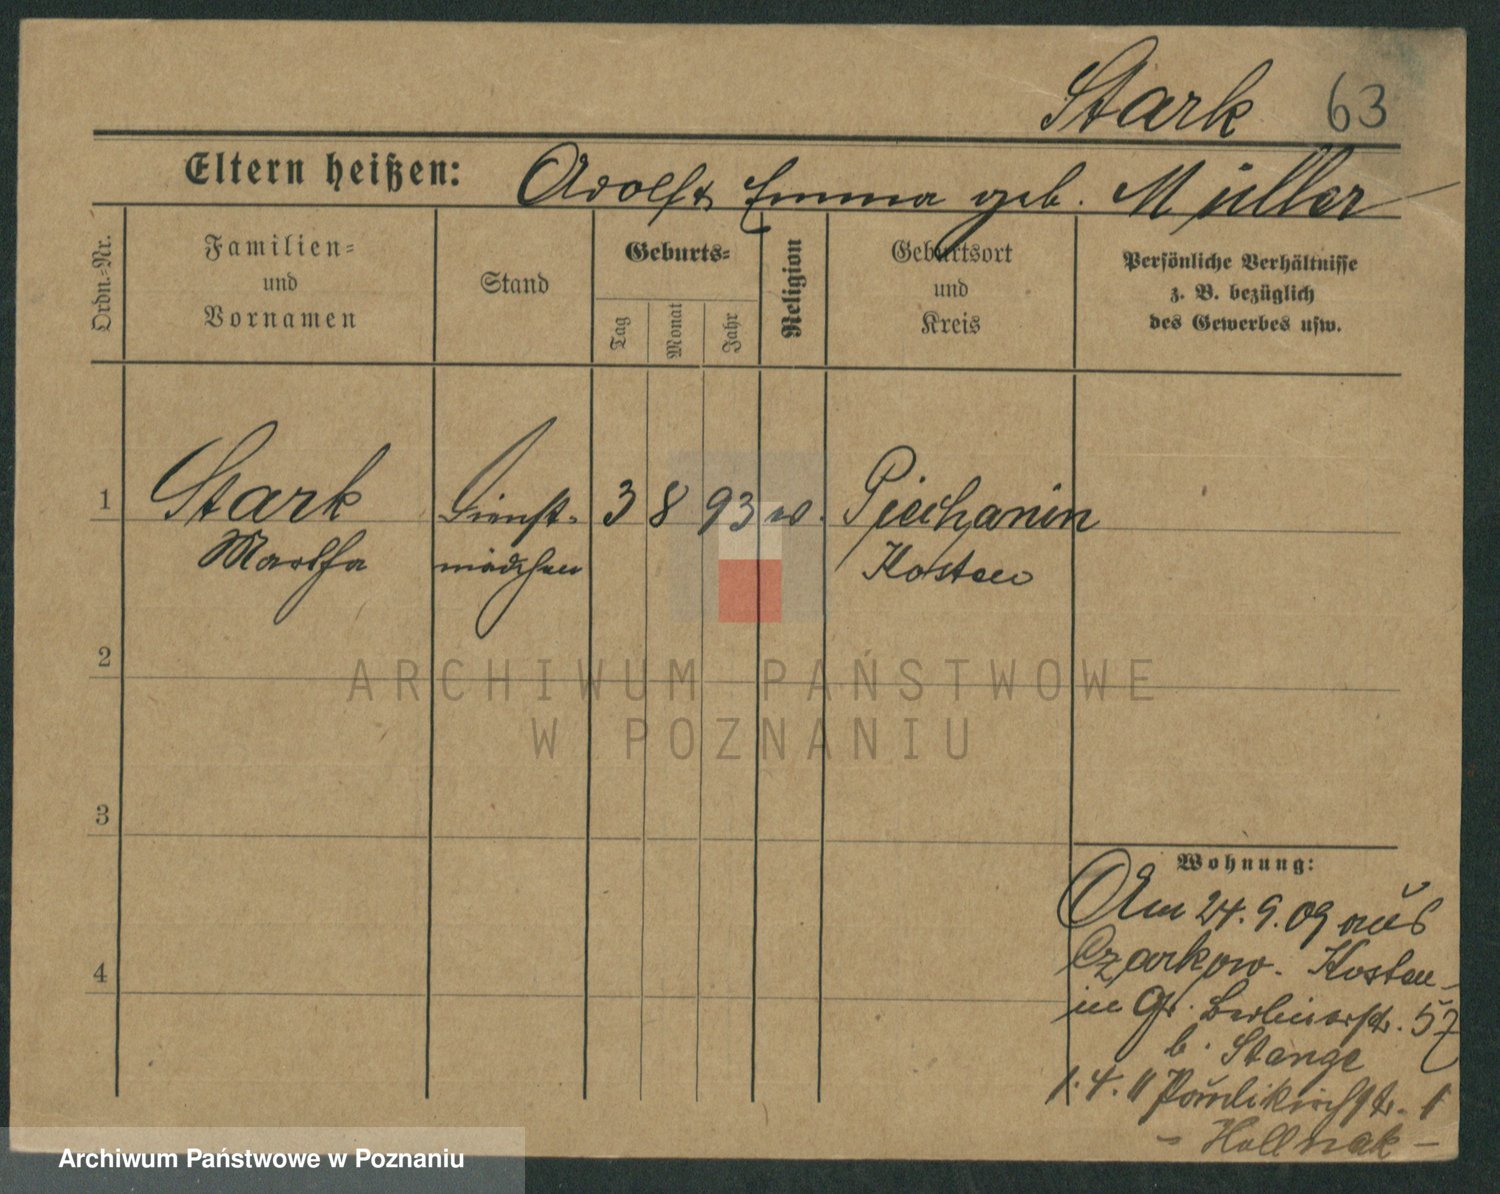 Stark 63
Eltern heißen: Adolf & Emma geb. Müller
Ordn.-Nr.
Familien-
und
Vornamen
Stand
Geburts-
Tag
Monat
Jahr
Religion
Geburtsort
und
Kreis
Persönliche Verhältnisse
z. B. bezüglich
des Gewerbes usw.
1 Stark Dienst- 3 8 93 Piechanin
Martha mädchen Kosten
2
ARCHIWUM PAŃSTWOWE
W POZNANIU
3
Wohnung:
Am 24.9.09 aus
Czarkow. Kosten
4
in Gr. Berlinerstr. 57
b. Stange
1.4.11 Paulikirchstr. 1
- Hollnak -
Archiwum Państwowe w Poznaniu